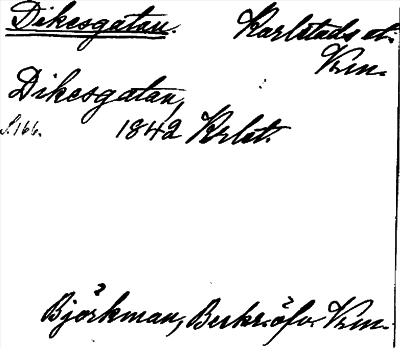 Dikesgatan. Karlstads st.
Vrm.
Dikesgatan,
S. 166. 1842 Krlst.
Björkman, Beskr. öfv. Vrm.